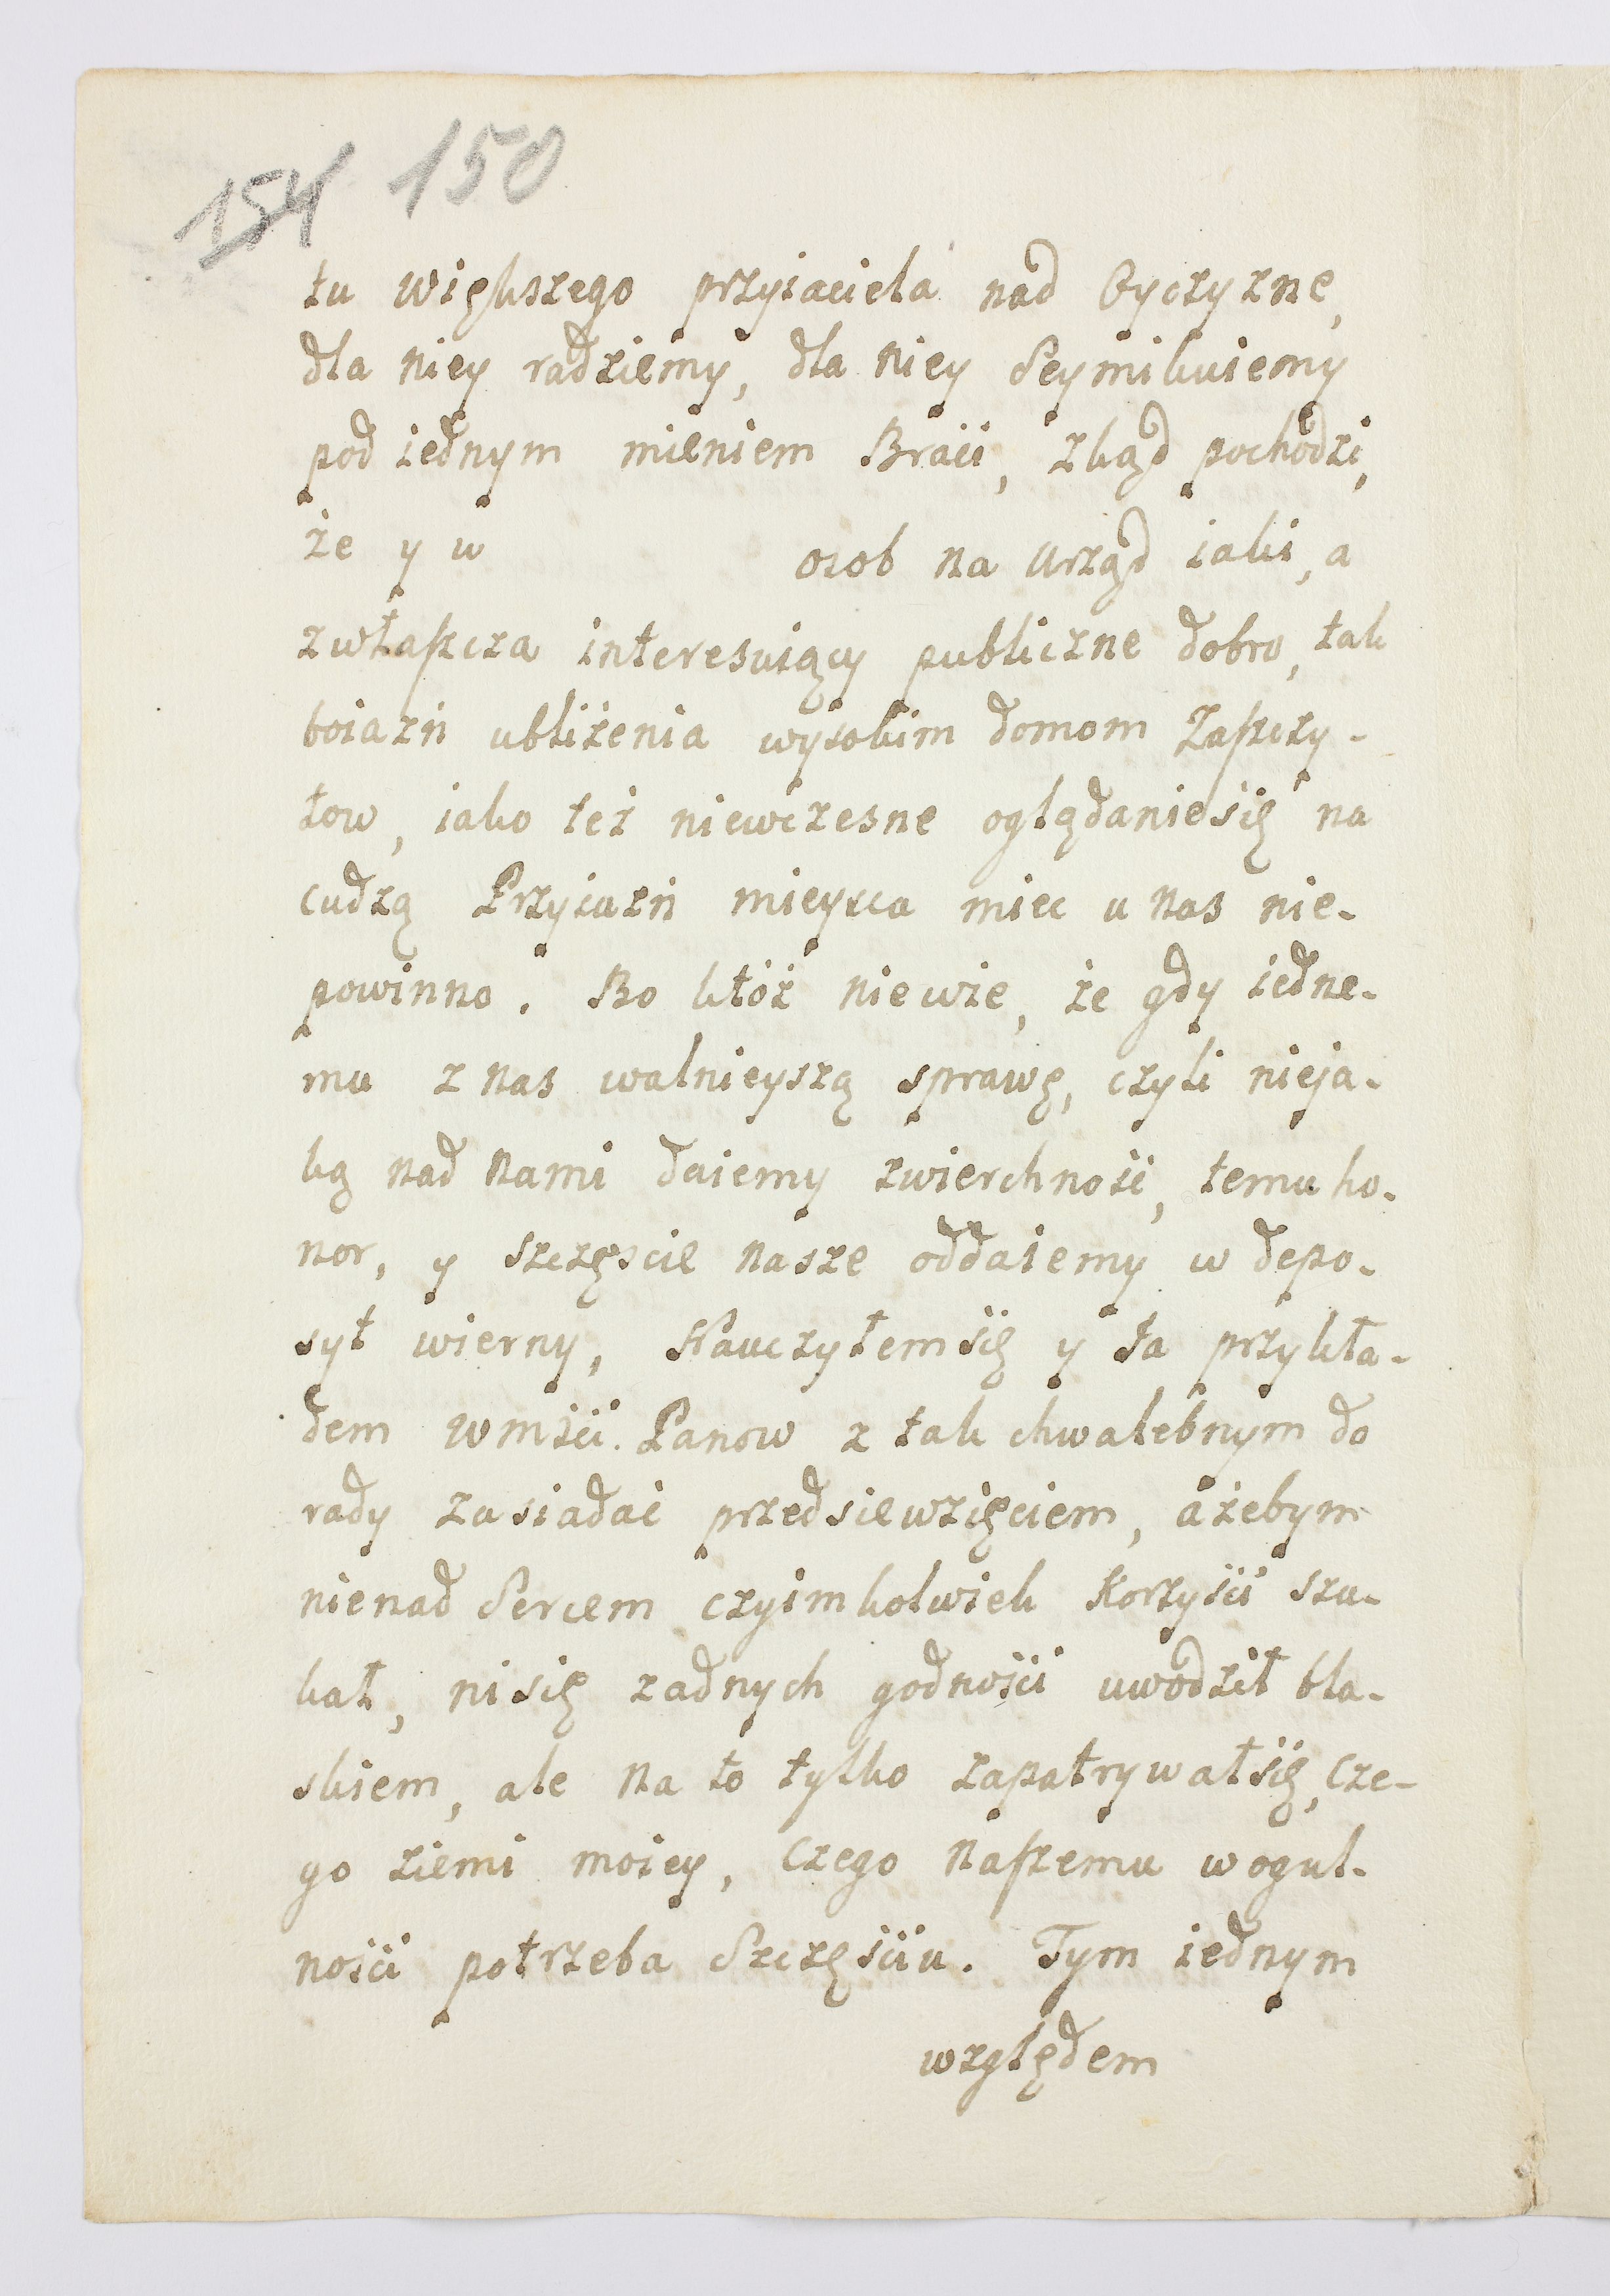 154 150
tu większego przyiaciela nad Oyczyznę,
dla niey radziemy, dla niey Seymikuiemy
pod iednym mieniem Braci, zkąd pochodzi,
że y w osob na Urząd iaki, a
zwłaszcza interesuiący publiczne dobro, tak
boiazń ubliżenia wysokim domom Zaszczy-
tow, iako też niewczesne oglądaniesię na
cudzą Przyiazń mieysca miec u nas nie-
powinno. Bo któż niewie, że gdy iedne-
mu z nas walnieyszą sprawę, czyli nieja-
ką nad nami daiemy zwierchność, temu ho-
nor, y szczęscie nasze oddaiemy w depo-
syt wierny, Nauczyłemsię y Ja przykła-
dem Wmści. Panow z tak chwalebnym do
rady zasiadać przedsiewzięciem, ażebym
nienad Sercem czyimkolwiek Korzyści szu-
kał, nisię zadnych godności uwodził bla-
skiem, ale na to tylko zapatrywałsię, cze-
go ziemi moiey, czego naszemu w ogul-
ności potrzeba Szczęściu. Tym iednym
względem